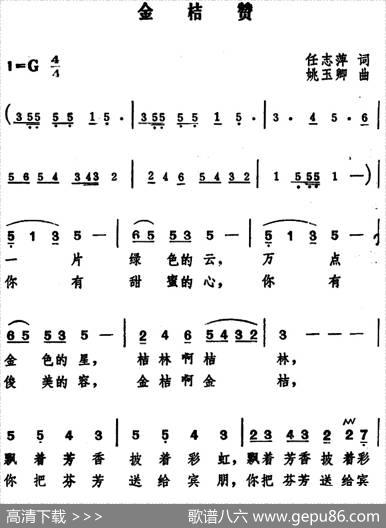 金桔赞
1=G 4/4
任志萍 词
姚玉卿 曲
(3 55 55 1 5· | 3 55 55 1 5· | 3· 4 5· 6 |
56 54 3432 | 2 1 6 4 5654 | 1 555 1 —)
5 1 3 5 — | 65 53 5 — | 5 1 3 5 —
一片绿色的云，万点
你有甜蜜的心，你有
65 53 5 — | 2 4 6 5432 | 3 — —
金色的星，桔林啊桔林，
俊美的容，金桔啊金桔，
5 5 4 3 5 5 4 3 | 23 43 2 2 7
飘着芳香披着彩虹，飘着芳香披着彩
你把芬芳送给宾朋，你把芬芳送给宾
高清下载 >>>
歌谱八六 www.gepu86.com